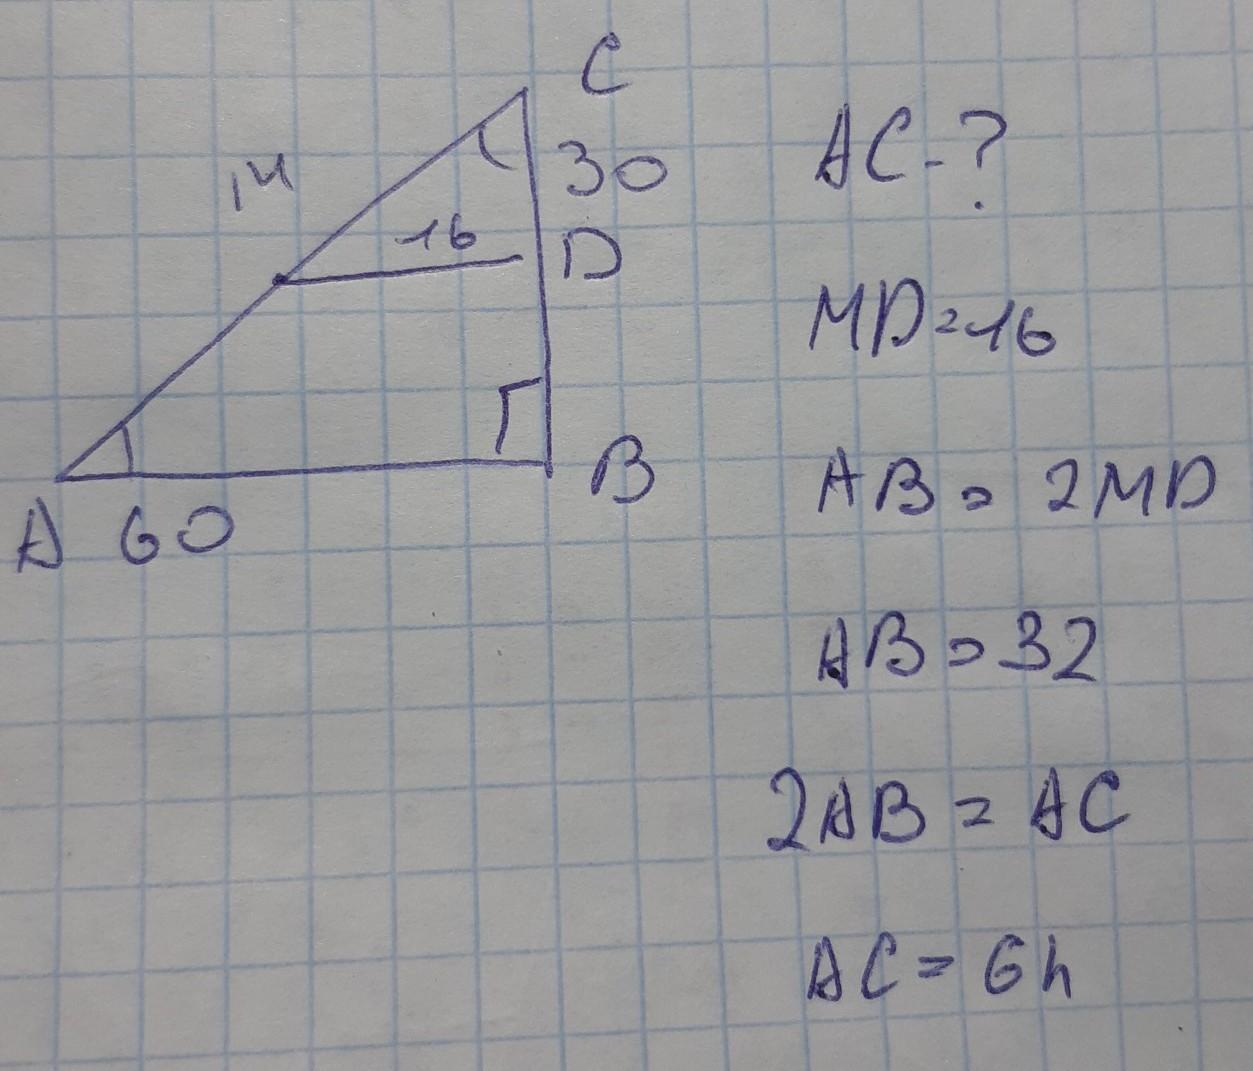 C
M
30
16
D
B
A 60
AC-?
MD=16
AB = 2MD
AB = 32
2AB = AC
AC = 64